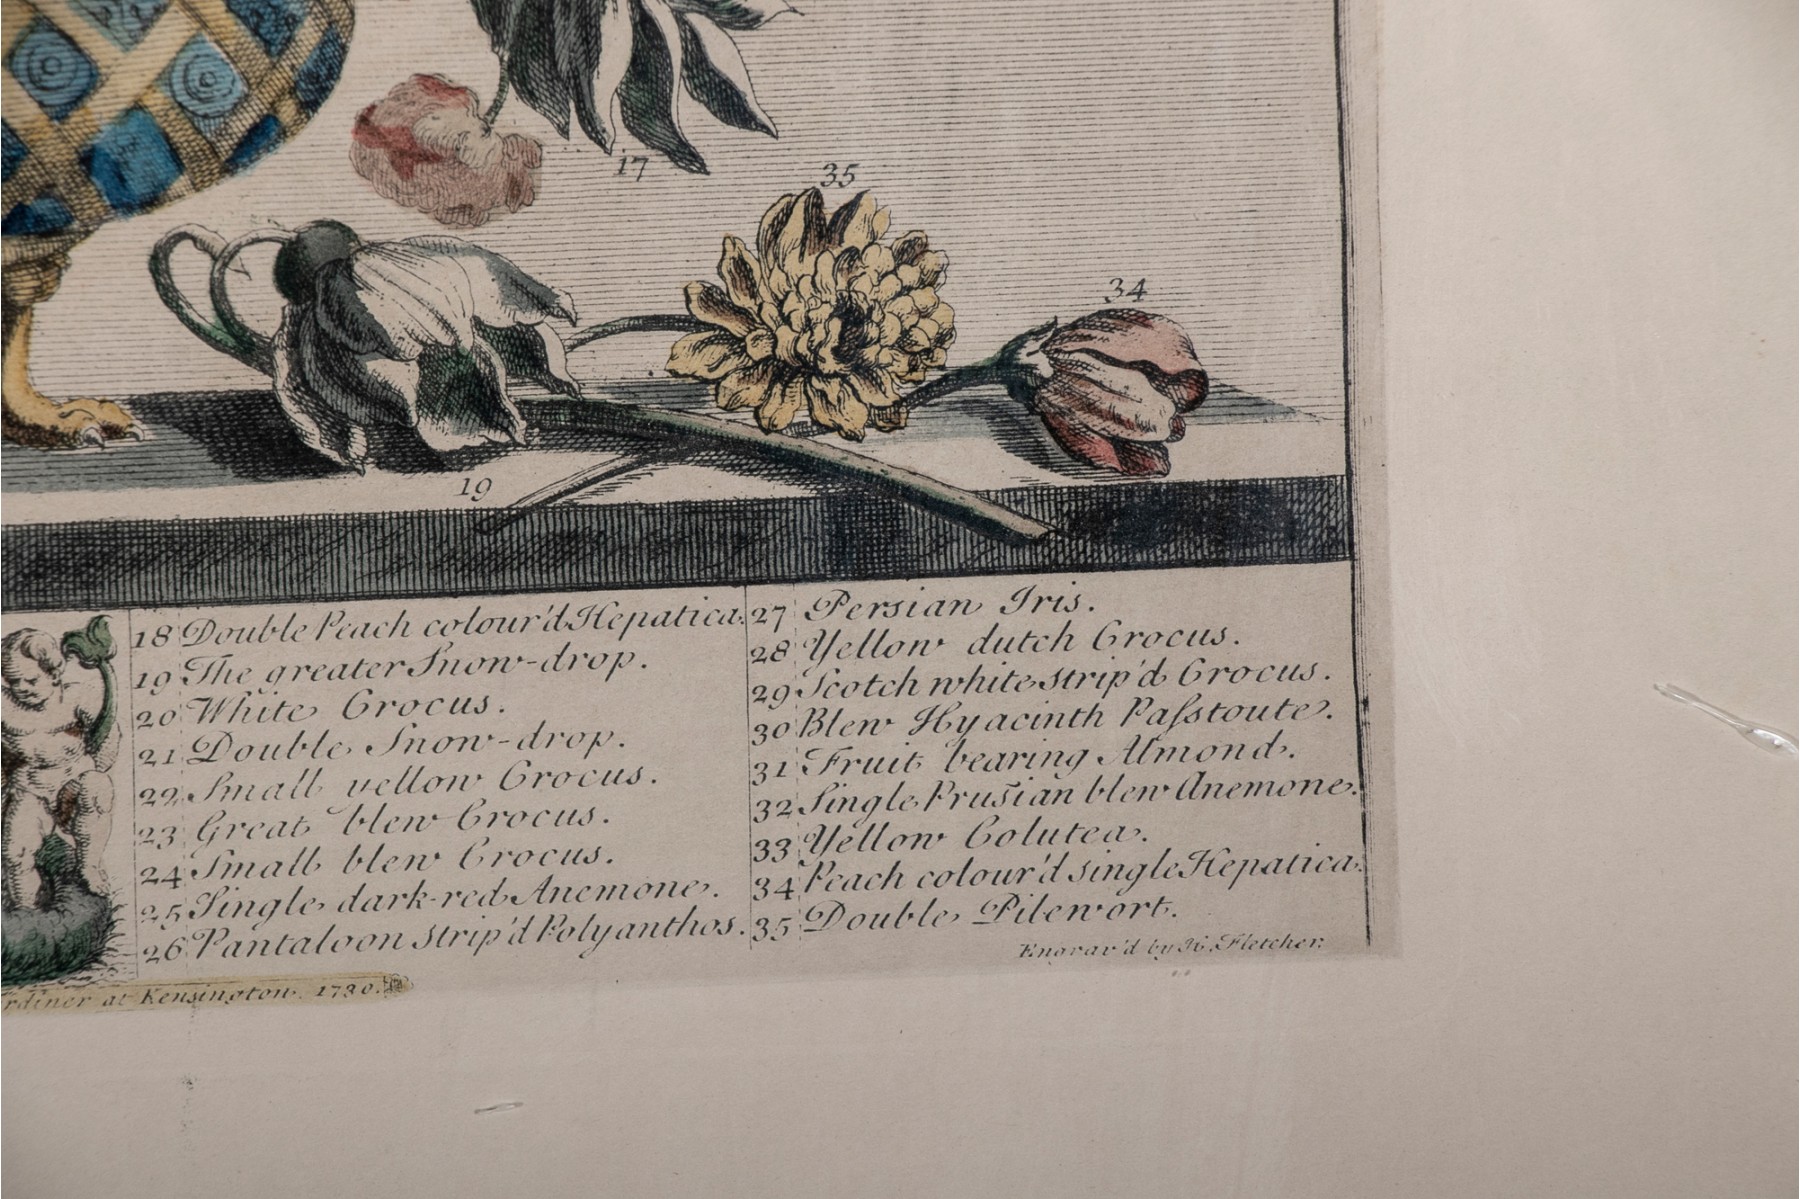 17
35
34
19
18 Double Peach colour'd Hepatica.
19 The greater Snow-drop.
20 White Crocus.
21 Double Snow-drop.
22 Small yellow Crocus.
23 Great blew Crocus.
24 Small blew Crocus.
25 Single dark-red Anemone.
26 Pantaloon strip'd Polyanthos.
27 Persian Iris.
28 Yellow dutch Crocus.
29 Scotch white strip'd Crocus.
30 Blew Hyacinth Paſstoute.
31 Fruit bearing Almond.
32 Single Prusian blew Anemone.
33 Yellow Colutea.
34 Peach colour'd single Hepatica.
35 Double Pilewort.
Engrav'd by H. Fletcher.
rdiner at Kensington. 1730.